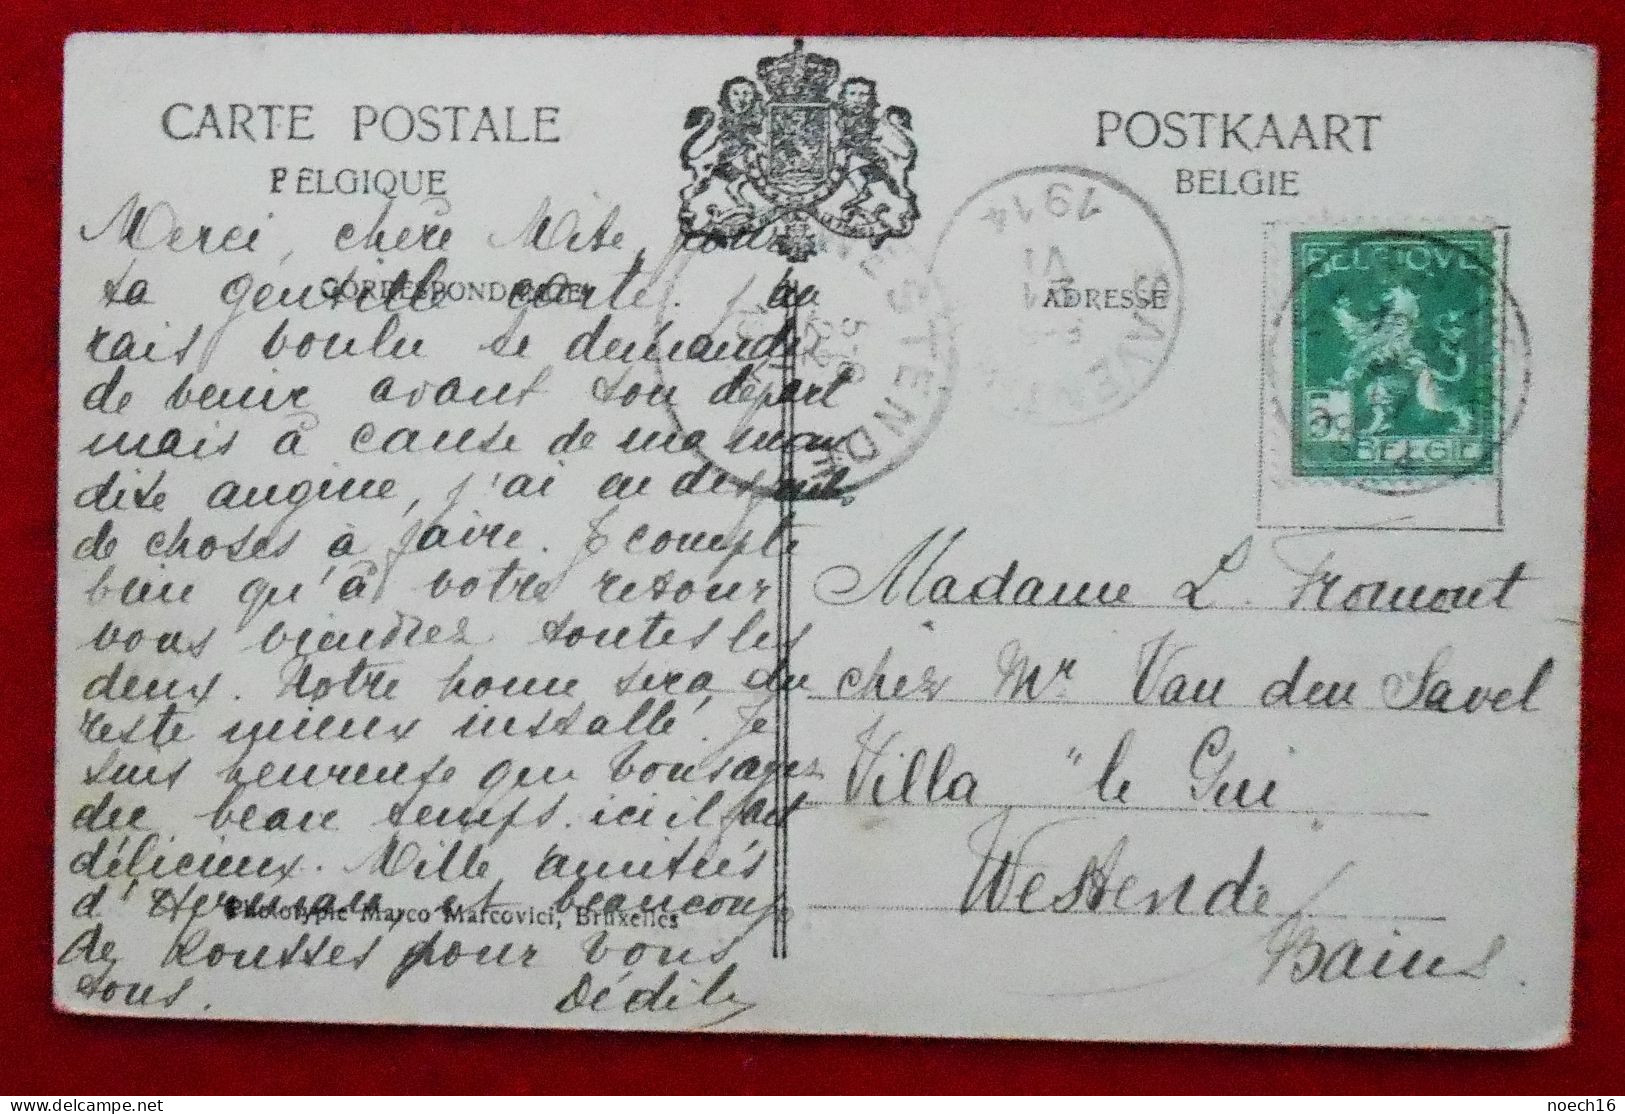 CARTE POSTALE
BELGIQUE
POSTKAART
BELGIE
CORRESPONDANCE
ADRESSE
Merci, chère Mite, pour
ta gentille carte. J'au
rais voulu te demander
de venir avant ton départ
mais à cause de ma mau
dite angine, j'ai eu
de choses à faire. Je compte
bien qu'à votre retour
vous viendrez toutes les
deux. Notre home sera du
reste mieux installé. Je
suis heureuse que vous ayez
du beau temps. ici il fait
délicieux. Mille amitiés
d'Herman et beaucoup
de Kousses pour vous
tous. Dédèle
Phototypie Marco Marcovici, Bruxelles
WESTENDE
5-6
22
1914
SAVENTHEM
VI
1914
BELGIQUE
5c
BELGIË
Madame L. Fromont
chez Mr Van den Savel
Villa "le Gui
Westende
Bains
noech16